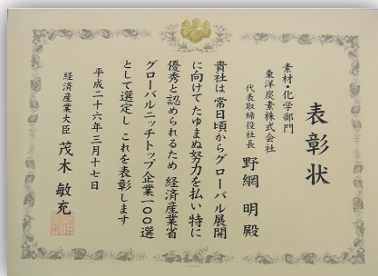 表彰状
素材・化学部門
東洋炭素株式会社
代表取締役社長 野網 明 殿
貴社は常日頃からグローバル展開
に向けてたゆまぬ努力を払い特に
優秀と認められるため 経済産業省
グローバルニッチトップ企業一〇〇選
として選定し これを表彰します
平成二十六年三月十七日
経済産業大臣 茂木 敏充